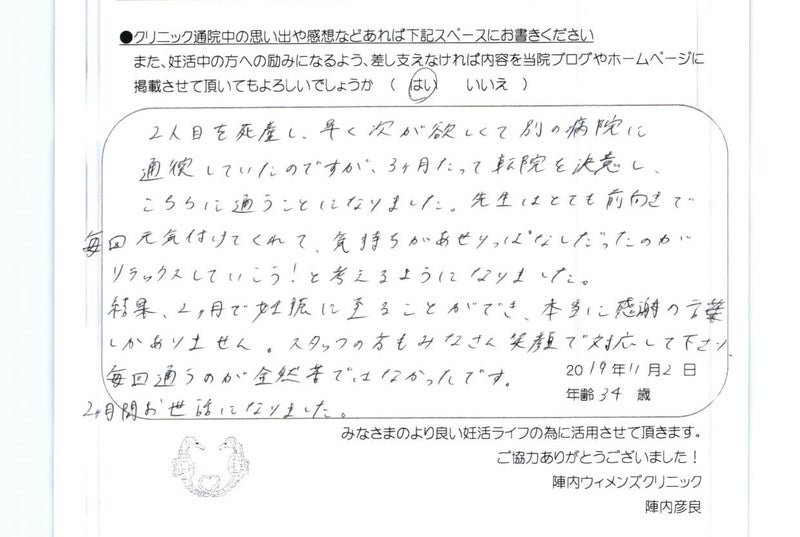 ●クリニック通院中の思い出や感想などあれば下記スペースにお書きください
また、妊活中の方への励みになるよう、差し支えなければ内容を当院ブログやホームページに
掲載させて頂いてもよろしいでしょうか （ はい　いいえ ）
2人目を死産し、早く次が欲しくて別の病院に
通院していたのですが、3ヶ月たって転院を決意し、
こちらに通うことになりました。先生はとても前向きで
毎回元気付けてくれて、気持ちがあせりっぱなしだったのが
リラックスしていこう！と考えるようになりました。
結果、2ヶ月で妊娠に至ることができ、本当に感謝の言葉
しかありません。スタッフの方もみなさん笑顔で対応して下さり、
毎回通うのが全然苦ではなかったです。
2ヶ月間お世話になりました。
2019年11月2日
年齢34歳
みなさまのより良い妊活ライフの為に活用させて頂きます。
ご協力ありがとうございました！
陣内ウィメンズクリニック
陣内彦良